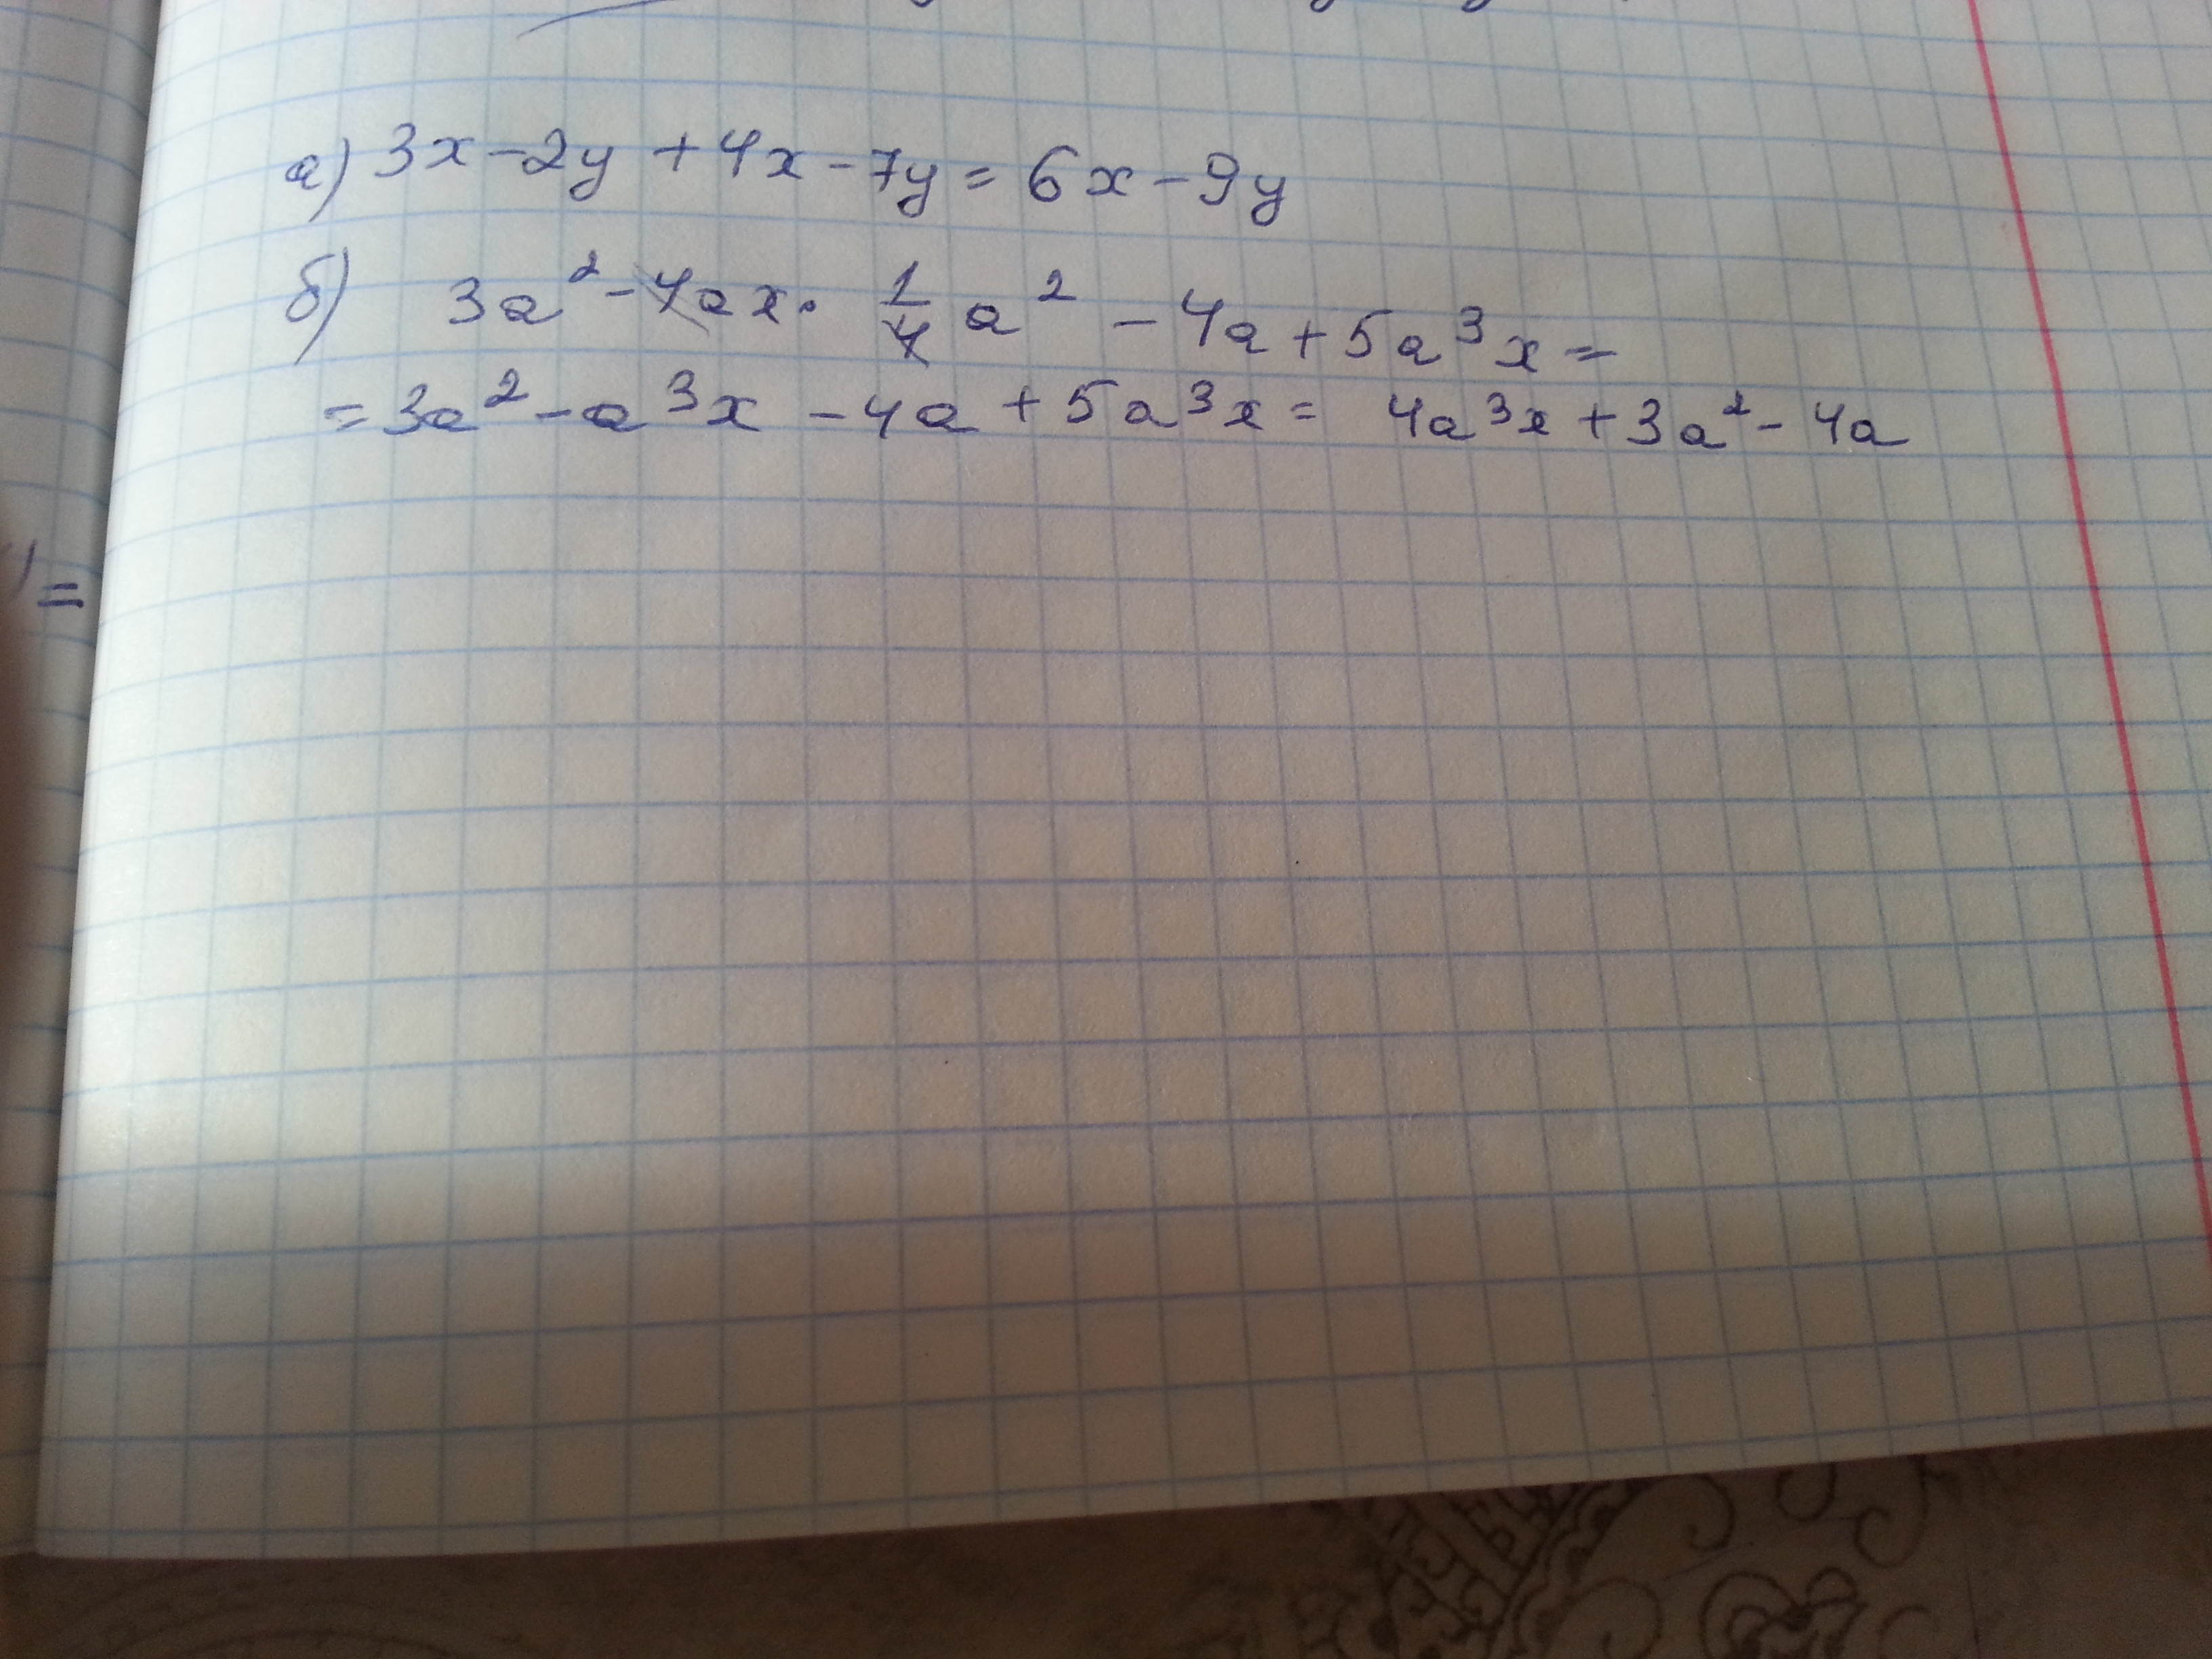 а) 3x - 2y + 4x - 7y = 6x - 9y
б) 3a² - 4ax · 1/4 a² - 4a + 5a³x =
= 3a² - a³x - 4a + 5a³x = 4a³x + 3a² - 4a
=